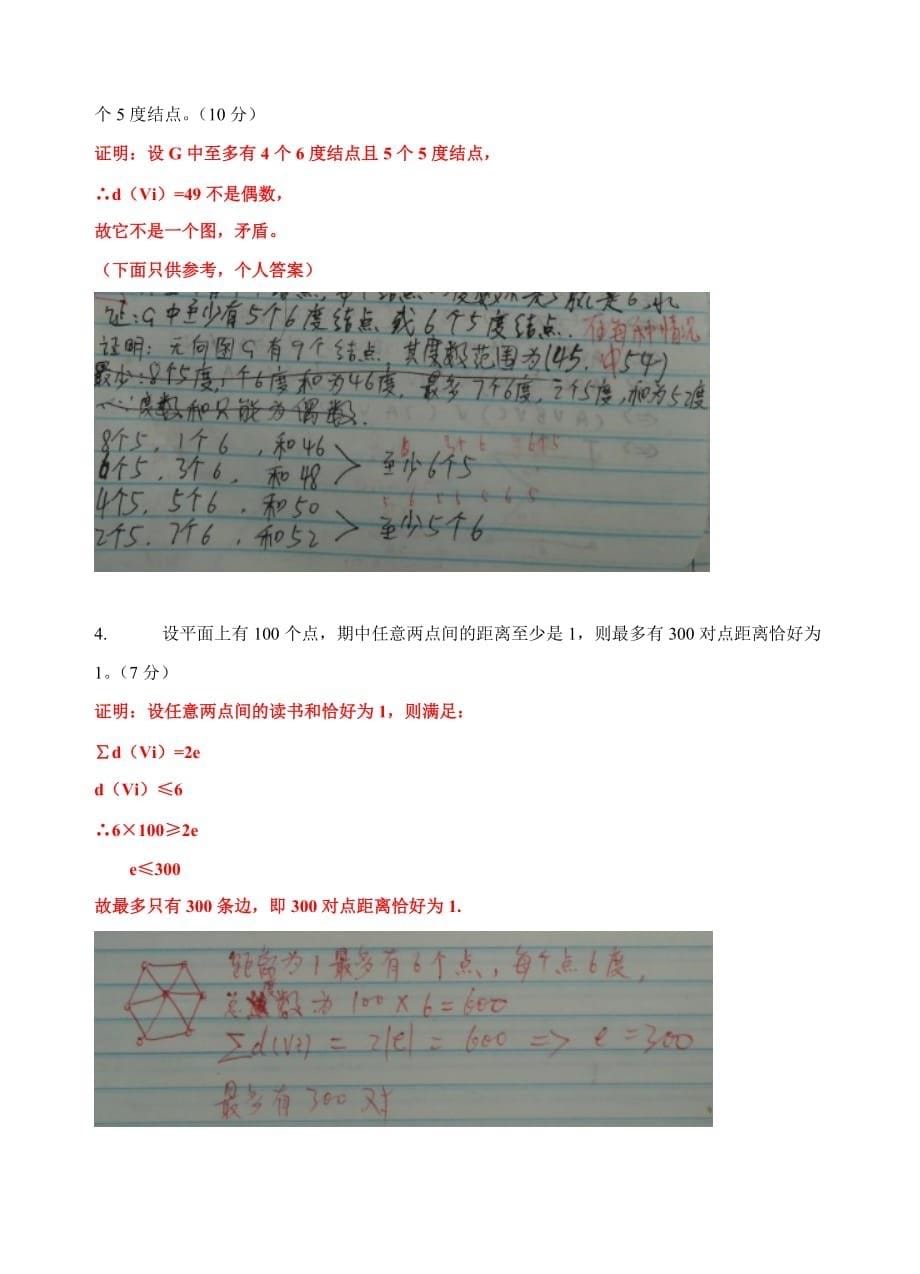 个 5 度结点。（10 分）
证明：设 G 中至多有 4 个 6 度结点且 5 个 5 度结点，
∴d（Vi）=49 不是偶数，
故它不是一个图，矛盾。
（下面只供参考，个人答案）
证：G中至少有5个6度结点或6个5度结点. 在每种情况
证明：无向图G有9个结点. 其度数范围为(45, 中54)
最少：8个5度，1个6度和为46度，最多7个6度，2个5度，和为52度
度数和只能为偶数.
8个5，1个6，和46
6个5，3个6，和48 > 至少6个5
4个5，5个6，和50
2个5，7个6，和52 > 至少5个6
4. 设平面上有 100 个点，期中任意两点间的距离至少是 1，则最多有 300 对点距离恰好为
1。（7 分）
证明：设任意两点间的读书和恰好为 1，则满足：
∑d（Vi）=2e
d（Vi）≤6
∴6×100≥2e
e≤300
故最多只有 300 条边，即 300 对点距离恰好为 1.
距离为1最多有6个点，每个点6度，
总度数为 100×6=600
∑d(Vi) = 2|e| = 600 => e=300
最多有300对